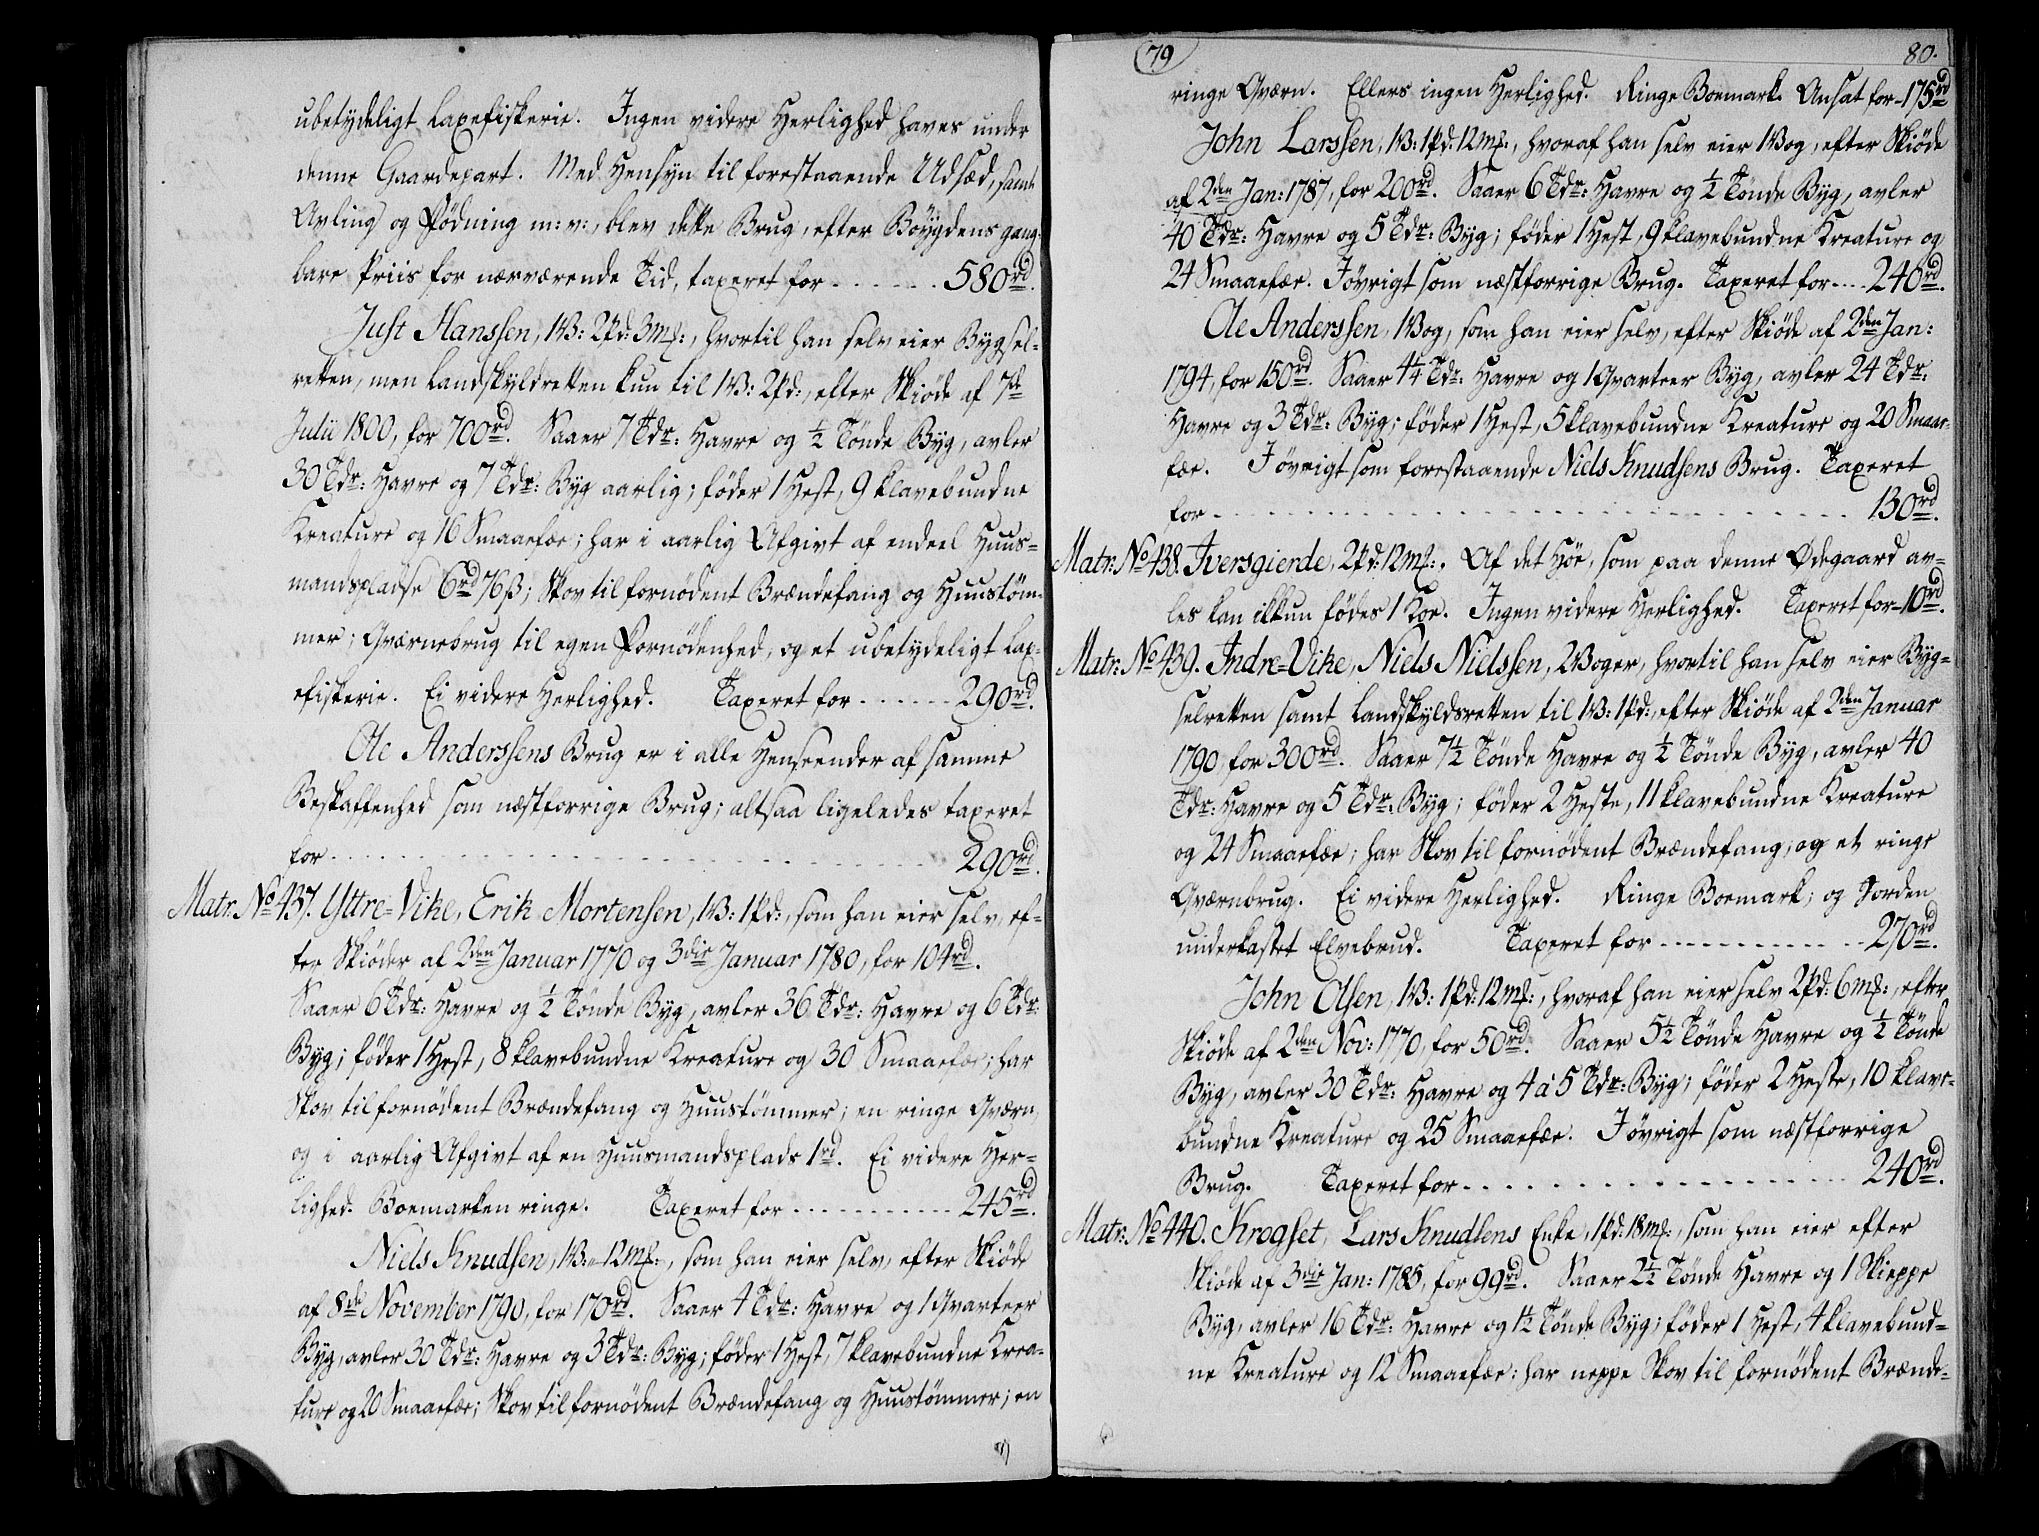 ubetydeligt Laxefiskerie. Ingen videre Herlighed haves under
denne Gaardepart. Med Hensyn til forestaaende Udsæd, samt
Avling og Födning m: v:, blev dette Brug, efter Böygdens gang-
bare Priis for nærværende Tid, taxeret for . . . . . . 580rd.
Just Hanssen, 1W: 2Pd: 3mk:, hvortil han selv eier Bygsel-
retten, men Landskyldretten kun til 1W: 2Pd:, efter Skiöde af 7de
Julii 1800, for 700rd. Saaer 7 Tdr: Havre og ½ Tönde Byg, avler
30 Tdr: Havre og 7 Tdr: Byg aarlig; föder 1 Hest, 9 klavebundne
Kreature og 16 Smaaefæe; har i aarlig Afgivt af endeel Huus-
mandspladse 6rd 76ß; Skov til fornödent Brændefang og Huustöm-
mer; Qværnebrug til egen Fornödenhed, og et ubetydeligt Lax-
efiskerie. Ei videre Herlighed. Taxeret for . . . . . . 290rd.
Ole Anderssens Brug er i alle Henseender af samme
Beskaffenhed som næstforrige Brug; altsaa ligeledes taxeret
for . . . . . . . . . . . . . . . . . . . . 290rd.
Matr: No 437. Yttre-Vike, Erik Mortensen, 1W: 1Pd:, som han eier selv, ef-
ter Skiöder af 2den Januar 1770 og 3die Januar 1780, for 104rd.
Saaer 6 Tdr: Havre og ½ Tönde Byg, avler 36 Tdr: Havre og 6 Tdr:
Byg; föder 1 Hest, 8 klavebundne Kreature og 30 Smaaefæe; har
Skov til fornödent Brændefang og Huustömmer; en ringe Qværn,
og i aarlig Afgivt af en Huusmandsplads 1rd. Ei videre Her-
lighed. Boemarken ringe. Taxeret for . . . . . . . . . 245rd.
Niels Knudsen, 1W: " 12mk:, som han eier selv, efter Skiöde
af 8de November 1790, for 170rd. Saaer 4 Tdr: Havre og 1 Qvarteer
Byg, avler 30 Tdr: Havre og 3 Tdr: Byg; föder 1 Hest, 7 klavebundne Krea-
ture og 20 Smaaefæe; Skov til fornödent Brændefang og Huustömmer; en
79
80.
ringe Qværn. Ellers ingen Herlighed. Ringe Boemark. Ansat for - 175rd
John Larssen, 1W: 1Pd: 12mk:, hvoraf han selv eier 1 Wog, efter Skiöde
af 2den Jan: 1787, for 200rd. Saaer 6 Tdr: Havre og ½ Tönde Byg, avler
40 Tdr: Havre og 5 Tdr: Byg; föder 1 Hest, 9 klavebundne Kreature og
24 Smaaefæe. I övrigt som næstforrige Brug. Taxeret for . . . . 240rd.
Ole Anderssen, 1 Wog, som han eier selv, efter Skiöde af 2den Jan:
1794, for 150rd. Saaer 4¼ Tdr: Havre og 1 Qvarteer Byg, avler 24 Tdr:
Havre og 3 Tdr: Byg; föder 1 Hest, 5 klavebundne Kreature og 20 Smaae-
fæe. I övrigt som forestaaende Niels Knudsens Brug. Taxeret
for . . . . . . . . . . . . . . . . . . . . 130rd.
Matr: No 438. Iversgierde, 2Pd: 12mk:. Af det Höe, som paa denne Ödegaard av-
les kan ikkun födes 1 Koe. Ingen videre Herlighed. Taxeret for - 10rd.
Matr: No 439. Indre-Vike, Niels Nielssen, 2 Woger, hvortil han selv eier Byg-
selretten samt Landskyldsretten til 1W: 1Pd:, efter Skiöde af 2den Januar
1790, for 300rd. Saaer 7½ Tönde Havre og ½ Tönde Byg, avler 40
Tdr: Havre og 5 Tdr: Byg; föder 2 Heste, 11 klavebundne Kreature
og 24 Smaaefæe; har Skov til fornödent Brændefang, og et ringe
Qværnbrug. Ei videre Herlighed. Ringe Boemark; og Jorden
underkastet Elvebrud. Taxeret for . . . . . . . . . . 270rd.
John Olsen, 1W: 1Pd: 12mk:, hvoraf han eier selv 2Pd: 6mk:, efter
Skiöde af 2den Nov: 1770, for 50rd. Saaer 5½ Tönde Havre og ½ Tönde
Byg, avler 30 Tdr: Havre og 4 à 5 Tdr: Byg; föder 2 Heste, 10 klave-
bundne Kreature og 25 Smaaefæe. I övrigt som næstforrige
Brug. Taxeret for . . . . . . . . . . . . . . . 240rd.
Matr: No 440. Krogset, Lars Knudsens Enke, 1Pd: 18mk:, som han eier efter
Skiöde af 3die Jan: 1785, for 99rd. Saaer 2½ Tönde Havre og 1 Skieppe
Byg, avler 16 Tdr: Havre og 1½ Tönde Byg; föder 1 Hest, 4 klavebund-
ne Kreature og 12 Smaaefæe: har neppe Skov til fornödent Brænde-